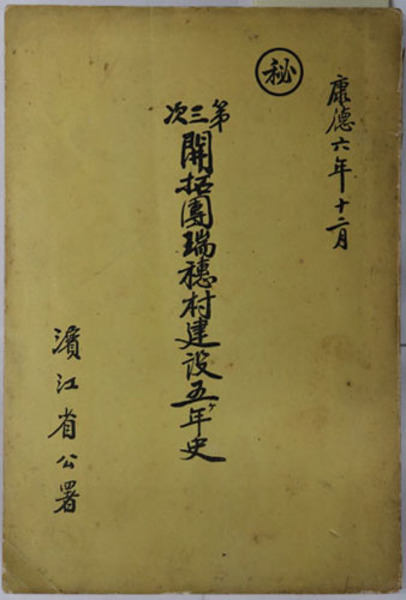 康德六年十二月
㊙
第三次
開拓團瑞穗村建設五ヶ年史
濱江省公署